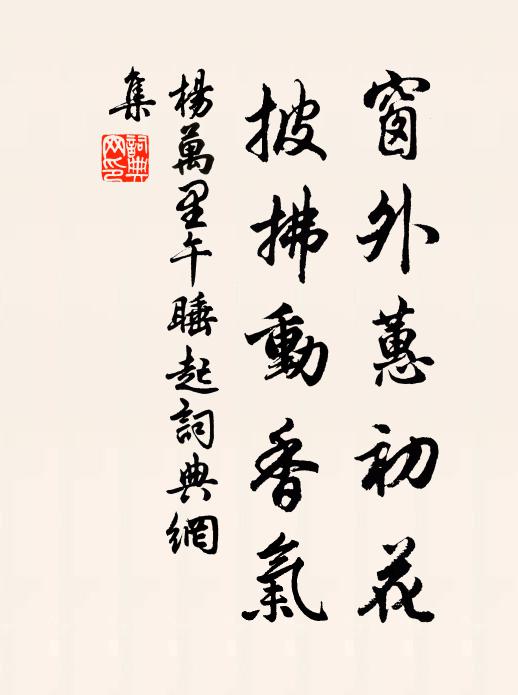 窗外蕙初花
披拂動香氣
楊萬里午睡起詞典網
集
詞典網印